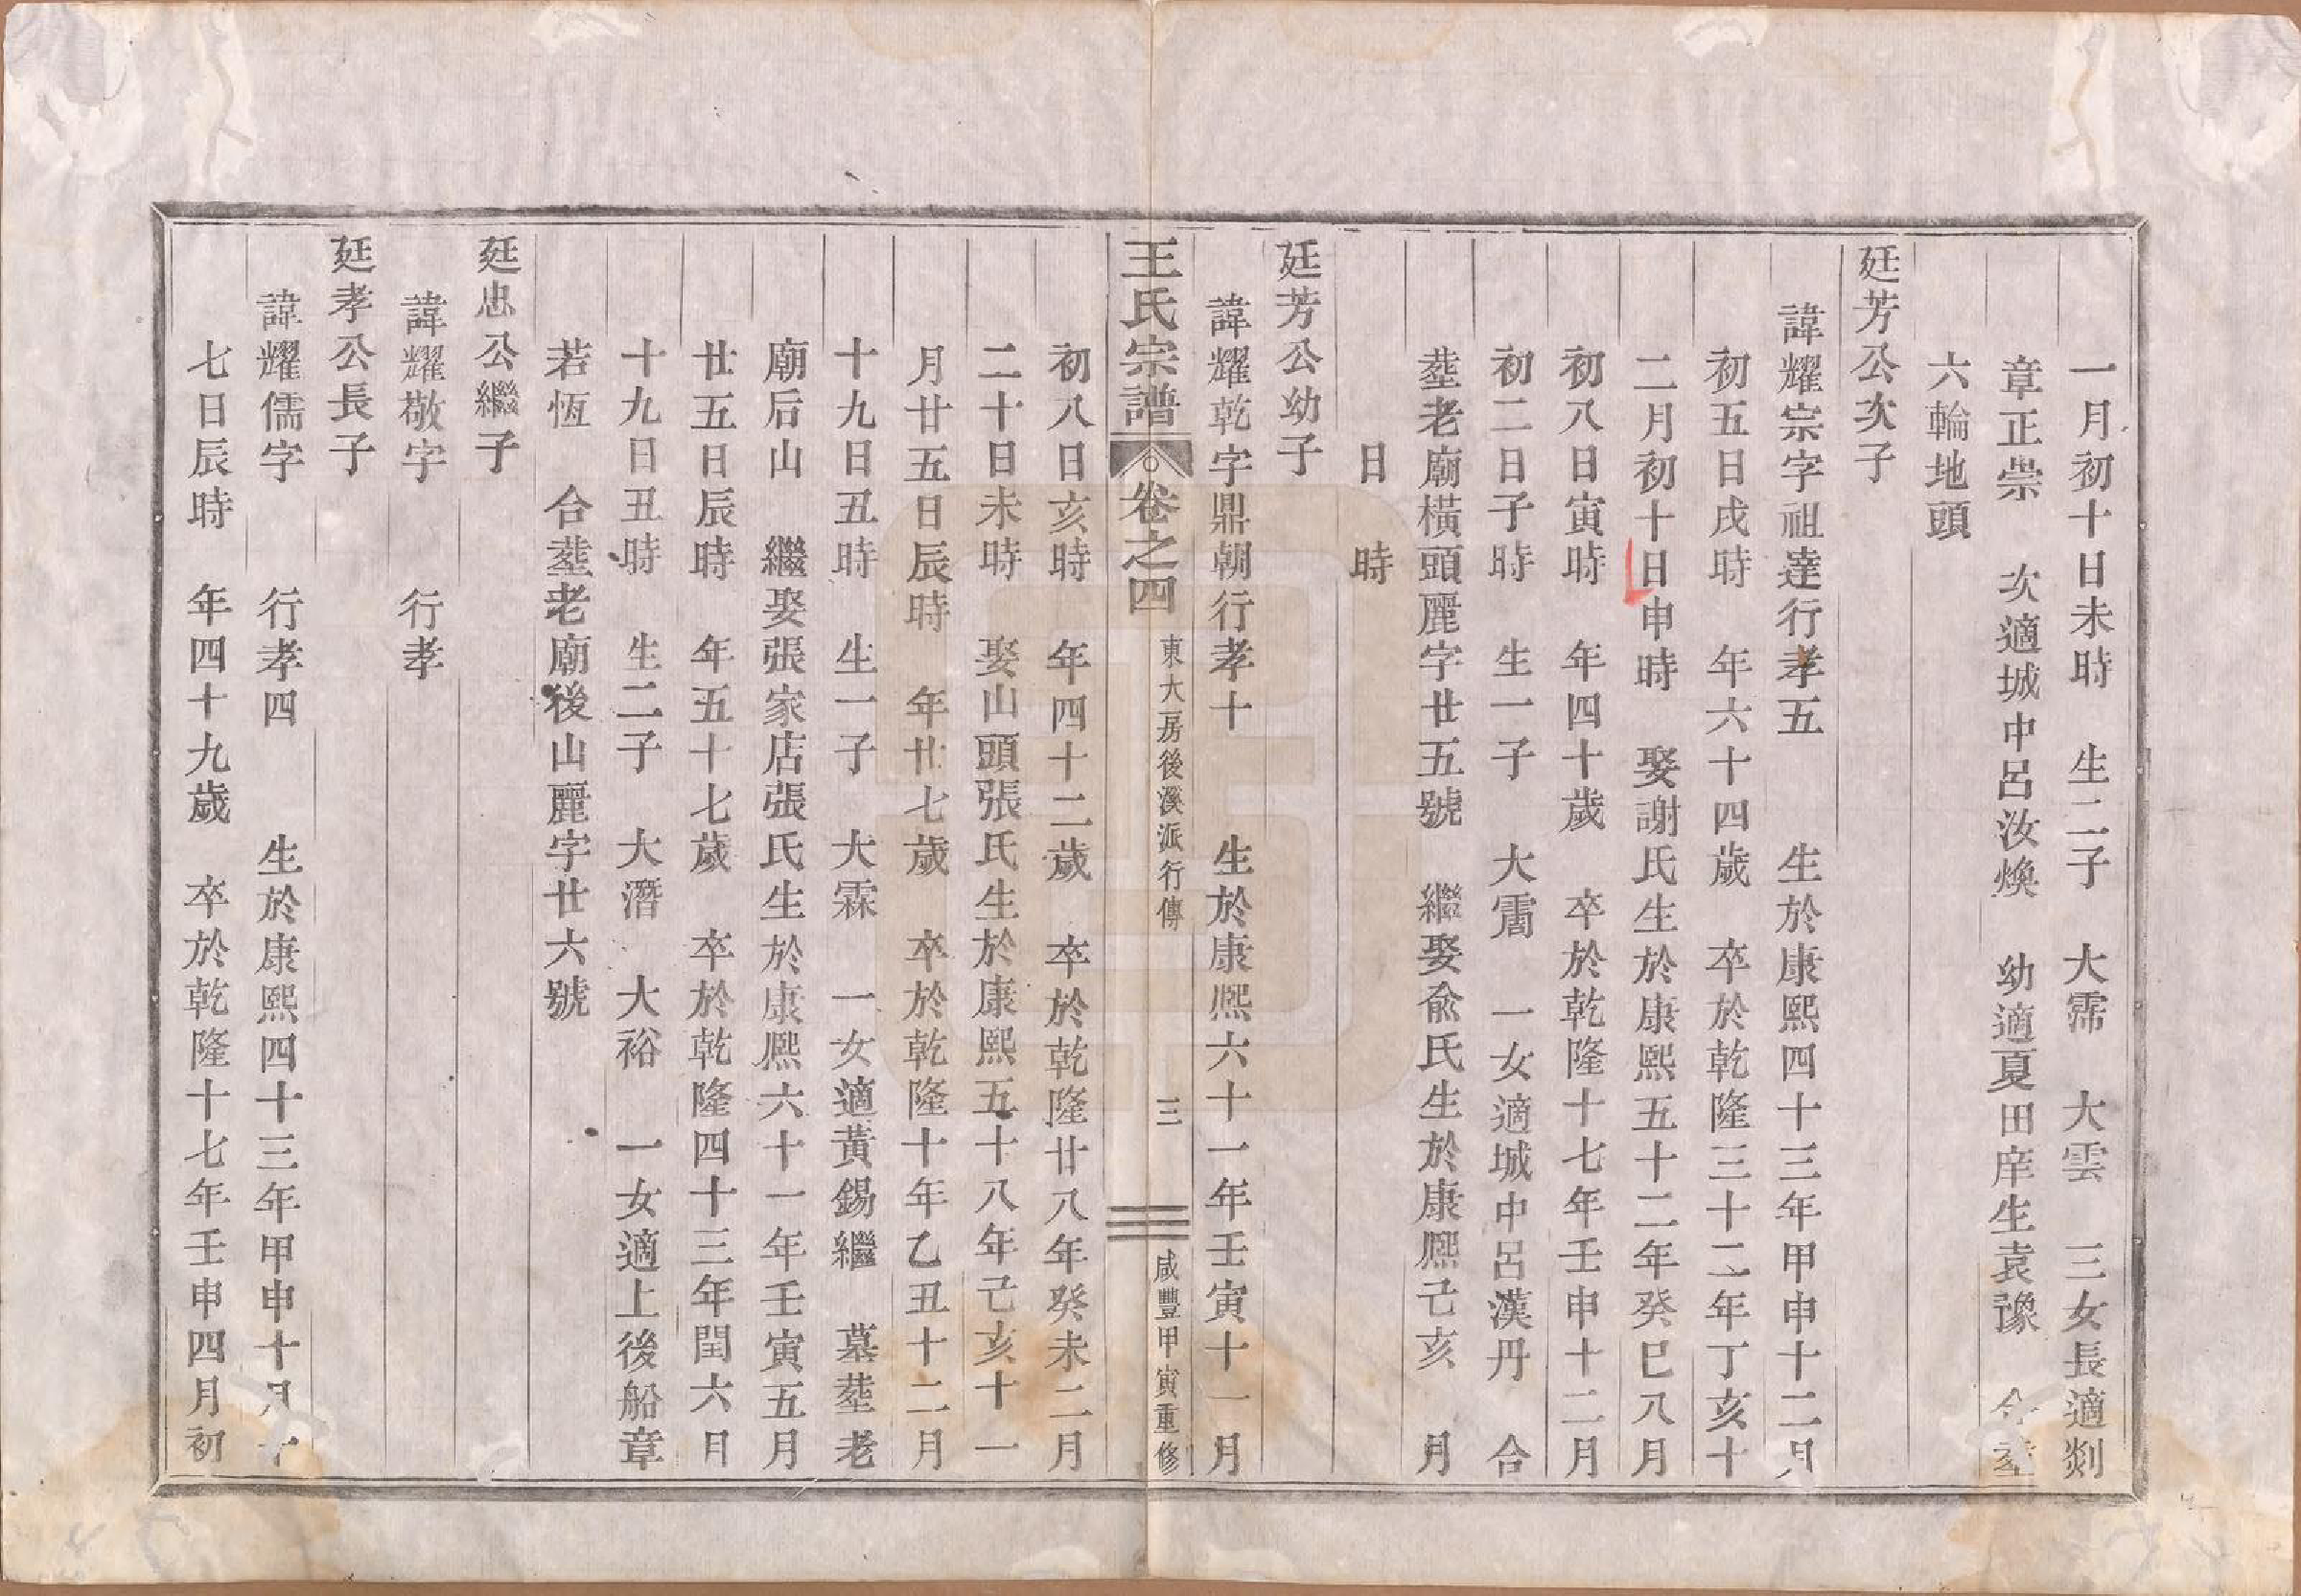 一月初十日未時　生二子　大霈　大雲　三女長適剡
章正崇　次適城中呂汝煥　幼適夏田庠生袁豫　合塟
六輪地頭
廷芳公次子
諱耀宗字祖達行孝五　生於康熙四十三年甲申十二月
初五日戌時　年六十四歲　卒於乾隆三十二年丁亥十
二月初十日申時　娶謝氏生於康熙五十二年癸巳八月
初八日寅時　年四十歲　卒於乾隆十七年壬申十二月
初二日子時　生一子　大霌　一女適城中呂漢丹　合
塟老廟橫頭麗字廿五號　繼娶俞氏生於康熙己亥　月
日　時
廷芳公幼子
諱耀乾字鼎朝行孝十　生於康熙六十一年壬寅十一月
王氏宗譜　卷之四　東大房後溪派行傳　三　咸豐甲寅重修
初八日亥時　年四十二歲　卒於乾隆廿八年癸未二月
二十日未時　娶山頭張氏生於康熙五十八年己亥十一
月廿五日辰時　年廿七歲　卒於乾隆十年乙丑十二月
十九日丑時　生一子　大霖　一女適黃錫繼　墓塟老
廟后山　繼娶張家店張氏生於康熙六十一年壬寅五月
廿五日辰時　年五十七歲　卒於乾隆四十三年閏六月
十九日丑時　生二子　大潛　大裕　一女適上後船章
若恆　合塟老廟後山麗字廿六號
廷忠公繼子
諱耀敬字　行孝
廷孝公長子
諱耀儒字　行孝四　生於康熙四十三年甲申十月十
七日辰時　年四十九歲　卒於乾隆十七年壬申四月初